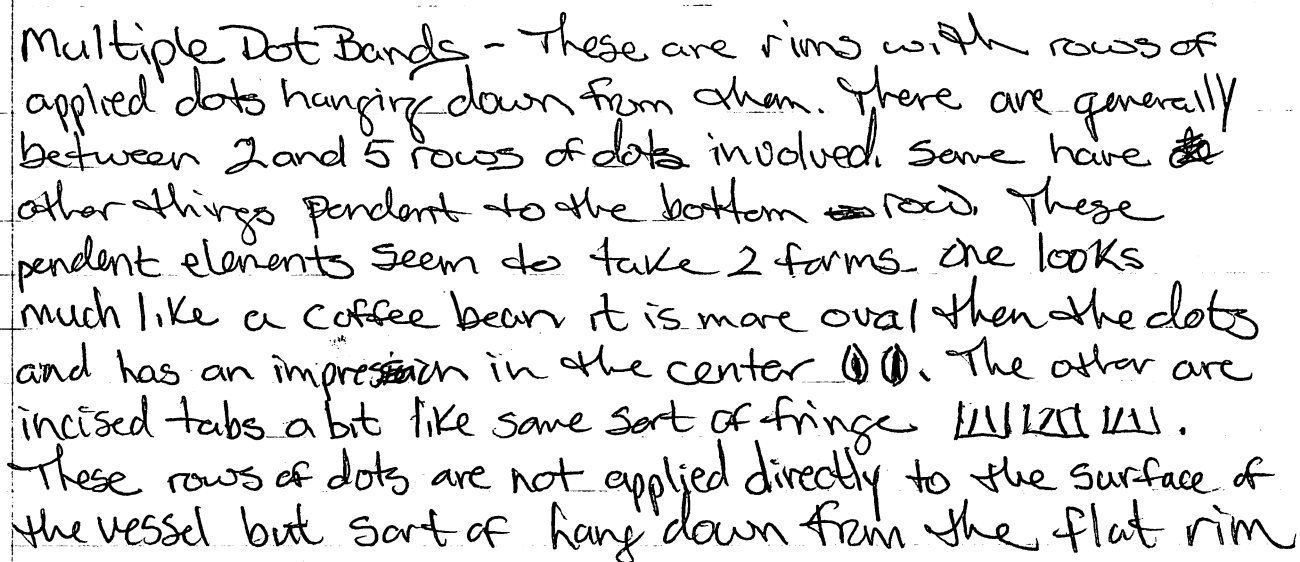 Multiple Dot Bands - These are rims with rows of
applied dots hanging down from them. There are generally
between 2 and 5 rows of dots involved. Some have
other things pendant to the bottom row. These
pendent elements seem to take 2 forms. One looks
much like a coffee bean it is more oval then the dots
and has an impression in the center. The other are
incised tabs a bit like some sort of fringe.
These rows of dots are not applied directly to the surface of
the vessel but sort of hang down from the flat rim